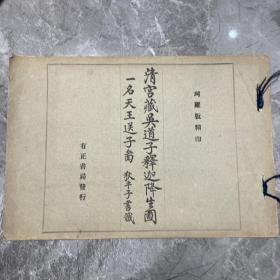 珂羅版精印
清宮藏吳道子釋迦降生圖
一名天王送子圖 狄平子書籤
有正書局發行